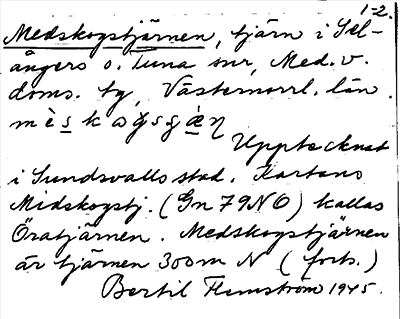 1-2.
Medskogstjärnen, tjärn i Sel-
ångers o. Tuna snr, Med. v.
doms. tg, Västernorrl. län.
Upptecknat
i Sundsvalls stad. Kartans
Medskogstj. (Gn 79NO) kallas
Öratjärnen. Medskogstjärnen
är tjärnen 300m N (forts.)
Bertil Flemström 1945.